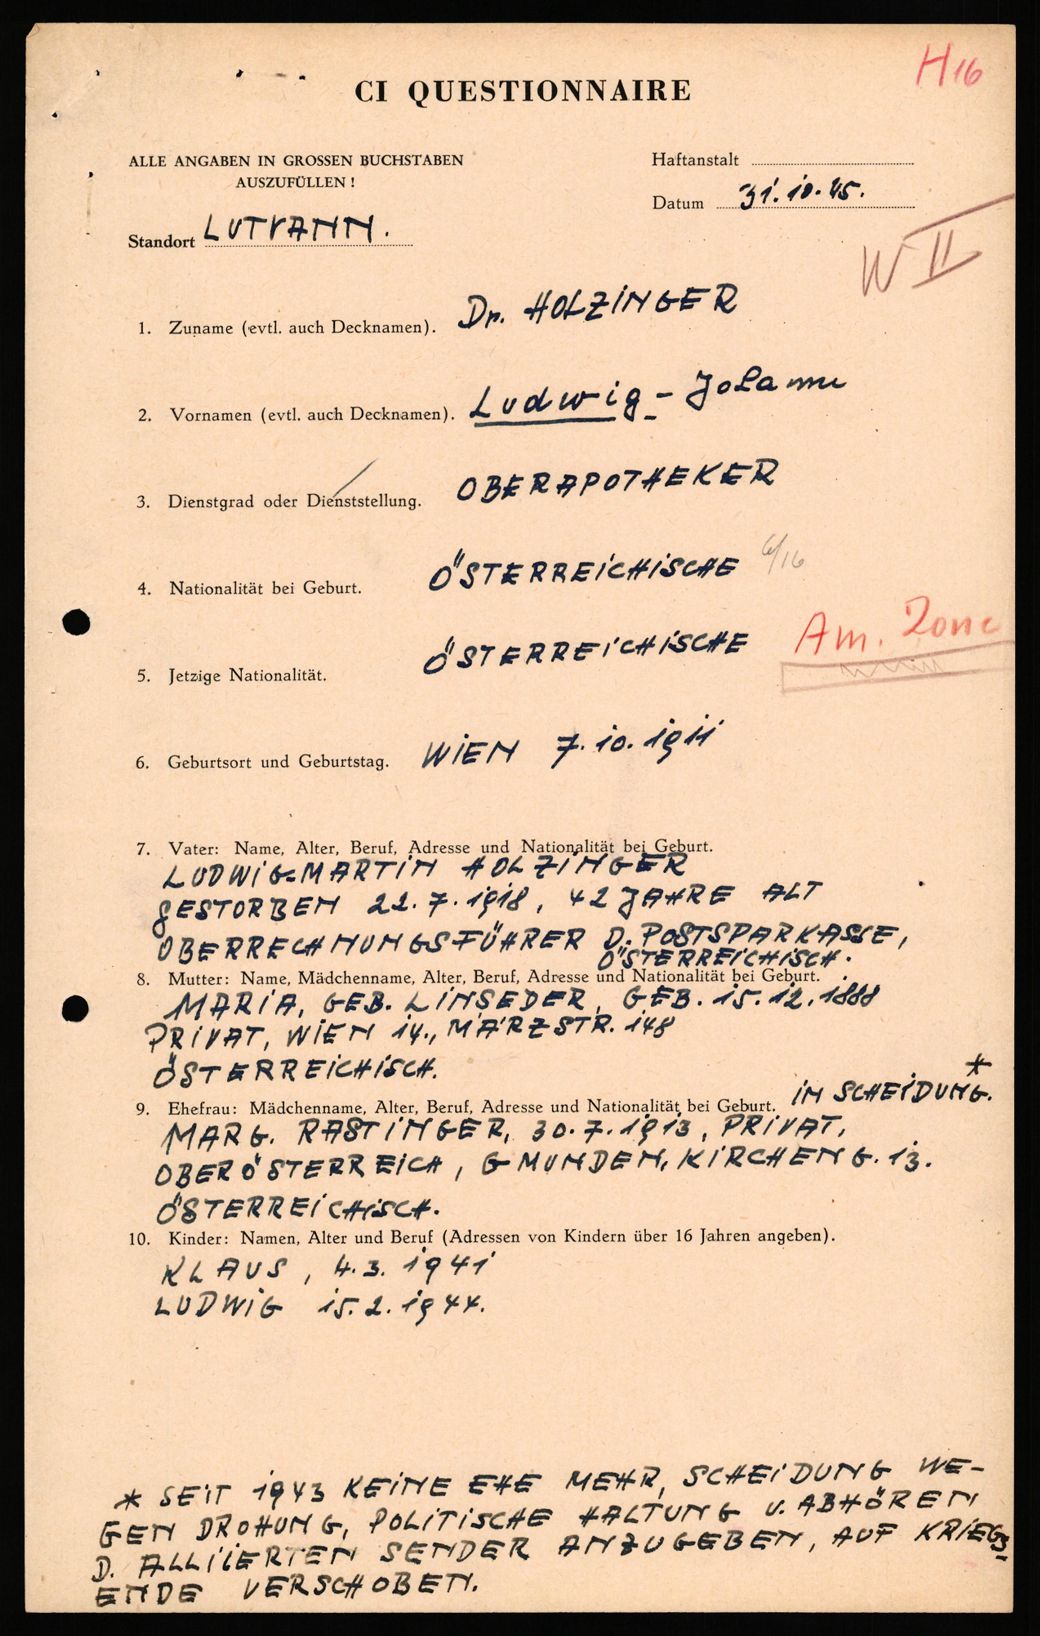 H 16
CI QUESTIONNAIRE
ALLE ANGABEN IN GROSSEN BUCHSTABEN
AUSZUFÜLLEN !
Haftanstalt
Datum 31.10.45.
Standort LUTVANN.
W II
1. Zuname (evtl. auch Decknamen). Dr. HOLZINGER
2. Vornamen (evtl. auch Decknamen). Ludwig - Johann
3. Dienstgrad oder Dienststellung. OBERAPOTHEKER
4. Nationalität bei Geburt. ÖSTERREICHISCHE 6/16
5. Jetzige Nationalität. ÖSTERREICHISCHE Am. Zone
6. Geburtsort und Geburtstag. WIEN 7.10.1911
7. Vater: Name, Alter, Beruf, Adresse und Nationalität bei Geburt.
LUDWIG-MARTIN HOLZINGER
GESTORBEN 22.7.1918, 42 JAHRE ALT
OBERRECHNUNGSFÜHRER D. POSTSPARKASSE,
ÖSTERREICHISCH.
8. Mutter: Name, Mädchenname, Alter, Beruf, Adresse und Nationalität bei Geburt.
MARIA, GEB. LINSEDER, GEB. 15.12.1888
PRIVAT, WIEN 14., MÄRZSTR. 148
ÖSTERREICHISCH.
9. Ehefrau: Mädchenname, Alter, Beruf, Adresse und Nationalität bei Geburt. IN SCHEIDUNG. *
MARG. RASTINGER, 30.7.1913, PRIVAT,
OBERÖSTERREICH, GMUNDEN, KIRCHENG. 13.
ÖSTERREICHISCH.
10. Kinder: Namen, Alter und Beruf (Adressen von Kindern über 16 Jahren angeben).
KLAUS, 4.3.1941
LUDWIG 15.2.1944.
* SEIT 1943 KEINE EHE MEHR, SCHEIDUNG WE-
GEN DROHUNG, POLITISCHE HALTUNG U. ABHÖREN
D. ALLIIERTEN SENDER ANZUGEBEN, AUF KRIEGS-
ENDE VERSCHOBEN.